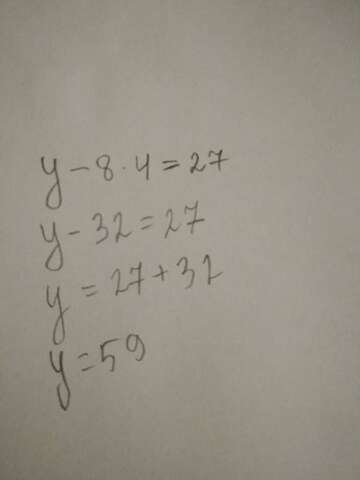 y - 8 · 4 = 27
y - 32 = 27
y = 27 + 32
y = 59